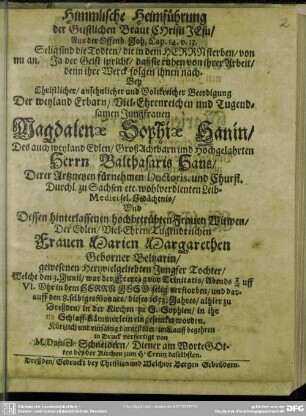 Himmlische Heimführung
der Geistlichen Braut Christi JEsu/
Aus der Offenb. Joh. Cap. 14. v. 13.
Selig sind die Todten/ die in dem HERRN sterben/ von
nu an. Ja der Geist spricht/ daß sie ruhen von ihrer Arbeit/
denn ihre Werck folgen ihnen nach.
Bey
Christlicher/ ansehnlicher und Volckreicher Beerdigung
Der weyland Erbarn/ Viel-Ehrenreichen und Tugend-
samen Jungfrauen
Magdalenæ Sophiæ Hanin/
Des auch weyland Edlen/ GroßAchtbarn und Hochgelahrten
Herrn Balthasaris Hans/
Derer Artzneyen fürnehmen Doctoris und Churfl.
Durchl. zu Sachsen etc. wohlverdienten Leib-
Medici sel. Gedächtnis/
Und
Dessen hinterlassenen hochbetrübten Frauen Witwen/
Der Edlen/ Viel-Ehren-Tugendreichen
Frauen Marien Margarethen
Geborner Belzarin/
gewesenen hertzvielgeliebten Jungfer Tochter/
Welche den 3. Junii, war der Freytag vor Trinitatis/ Abends
VI. Uhr in dem HERRN JESU selig verstorben/ und dar-
auff den 8. selbiges Monats/ dieses Jahres/ alhier zu
Dreßden/ in der Kirchen zu S. Sophien/ in ihr
Schlaff-Kämmerlein eingesencket worden.
Kürtzlich und einfältig dargestellet/ und auff begehren
in Druck verfertigt von
M. Daniel Schneidern/ Diener am Worte Got-
tes bey der Kirchen zum H. Creutz daselbsten.
Dreßden/ Gedruckt bey Christian und Melchior Bergen Gebrüdern.